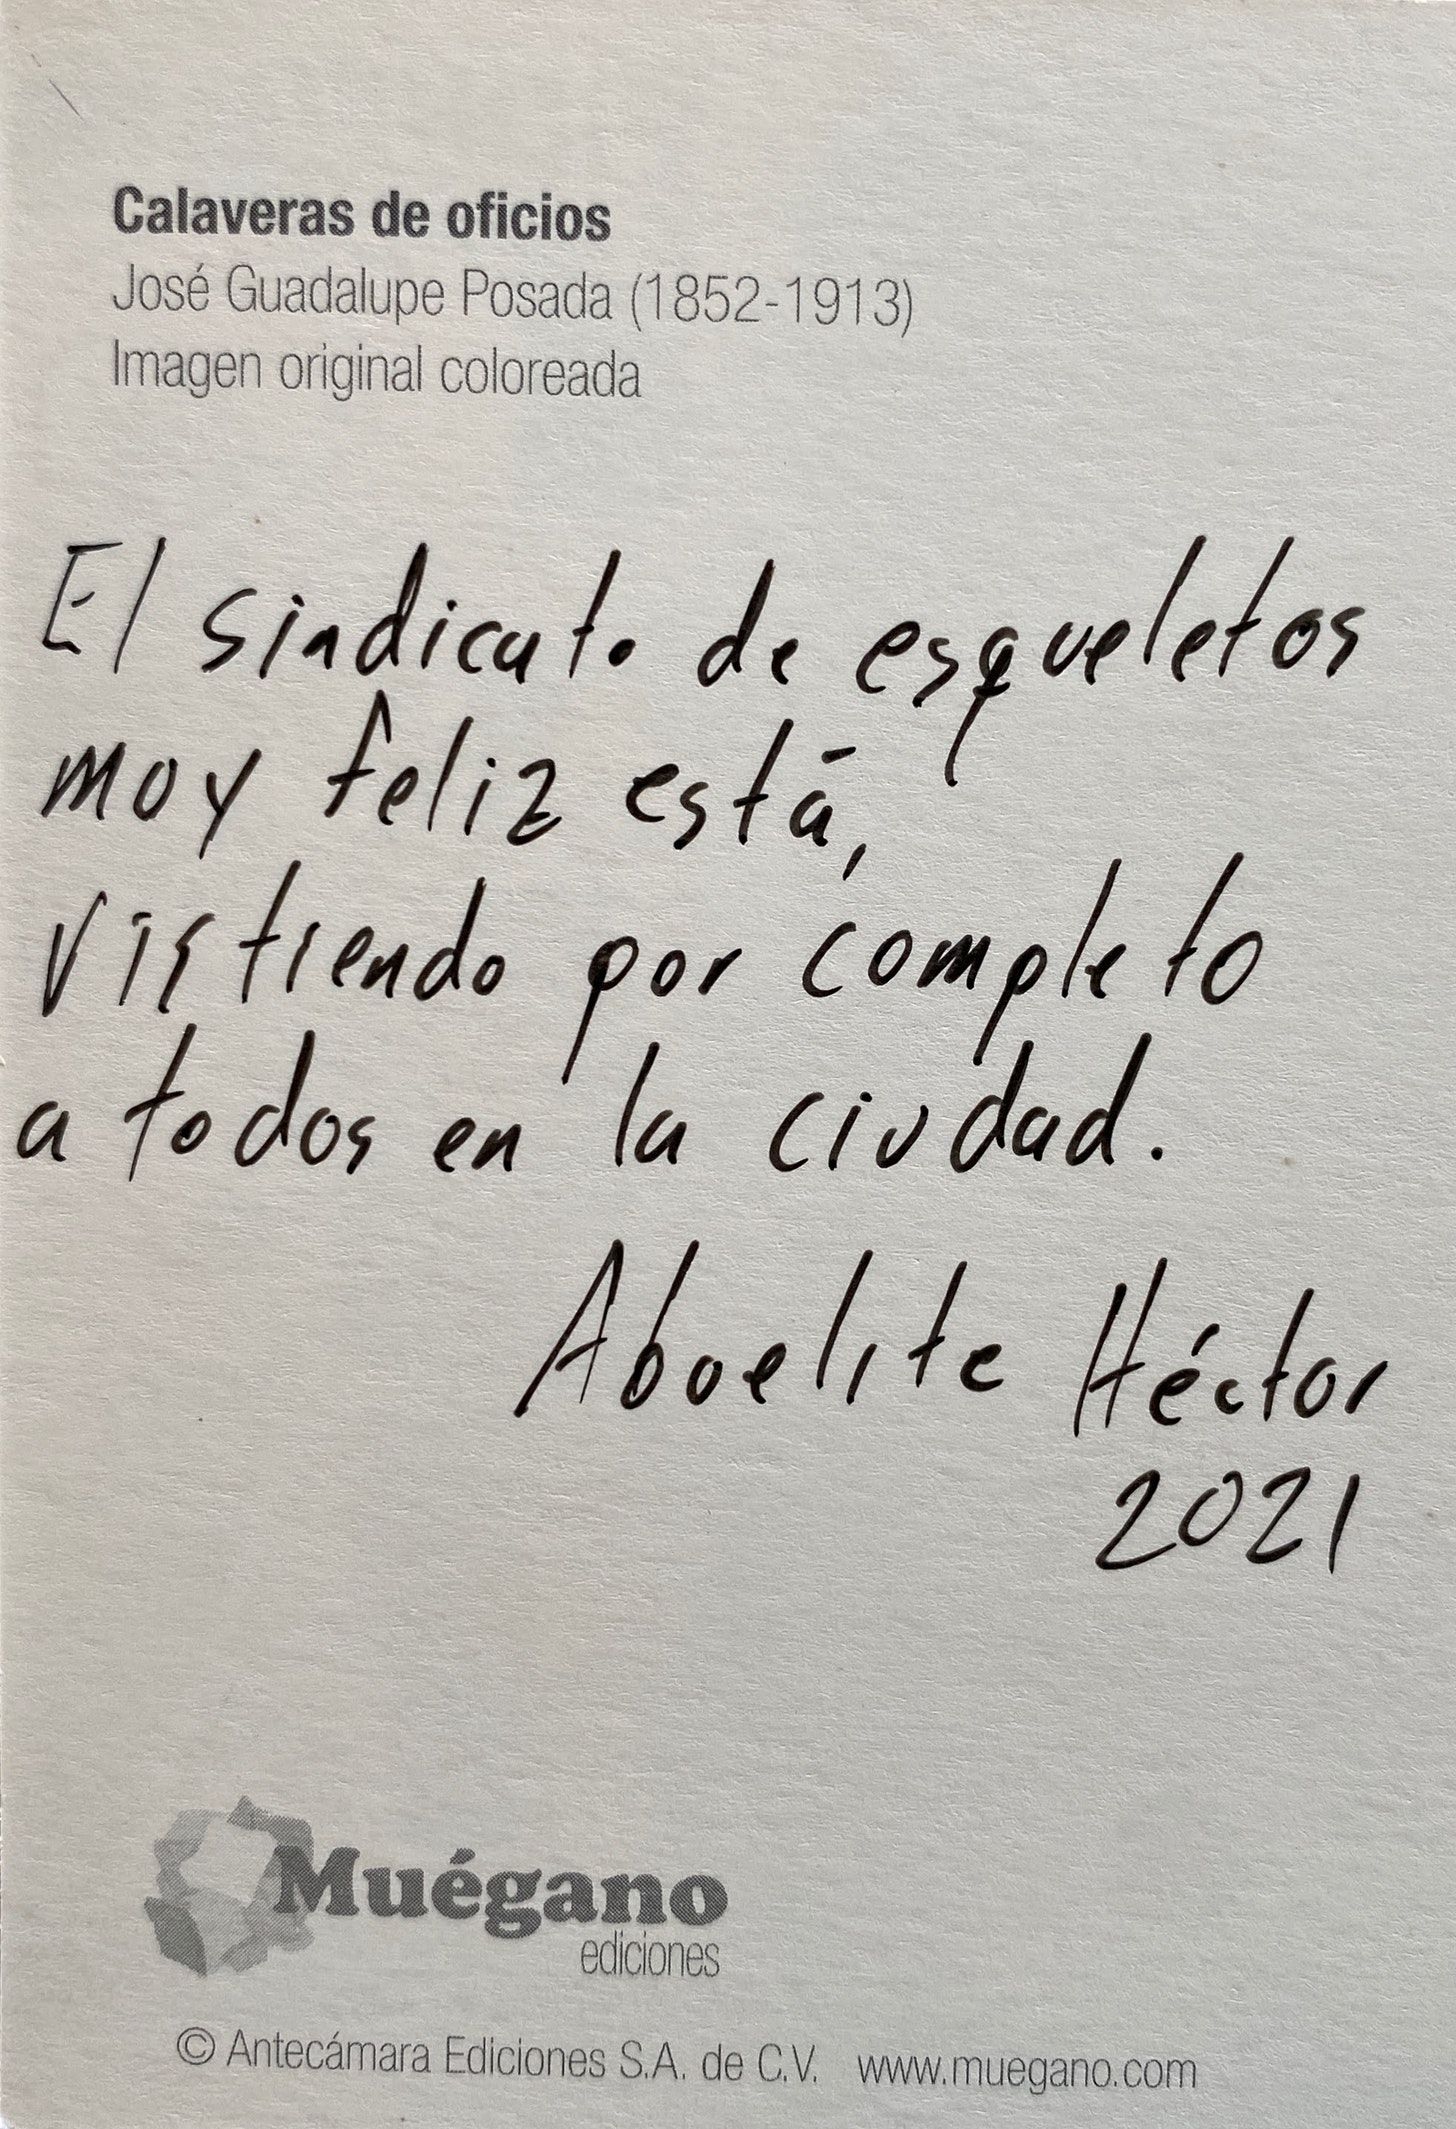 Calaveras de oficios
José Guadalupe Posada (1852-1913)
Imagen original coloreada
El sindicato de esqueletos
muy feliz está,
vistiendo por completo
a todos en la ciudad.
Abuelite Héctor
2021
Muégano
ediciones
© Antecámara Ediciones S.A. de C.V. www.muegano.com